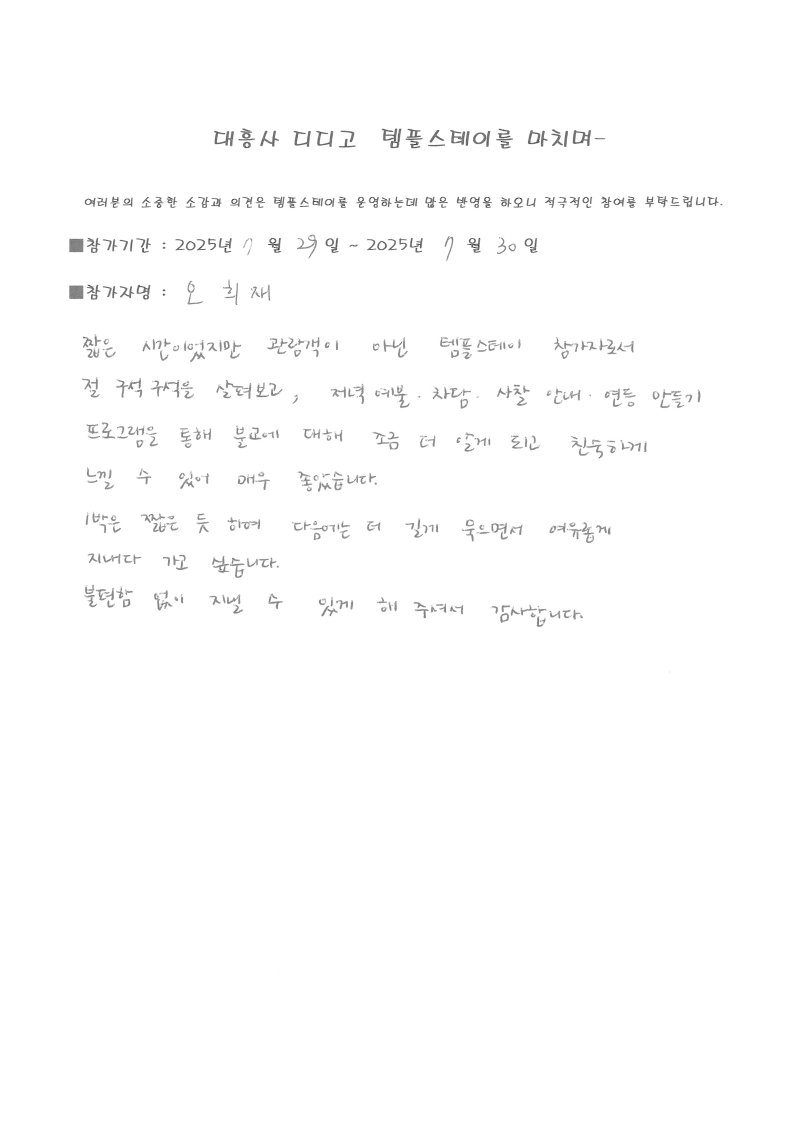 대흥사 디디고 템플스테이를 마치며-
여러분의 소중한 소감과 의견은 템플스테이를 운영하는데 많은 반영을 하오니 적극적인 참여를 부탁드립니다.
■참가기간 : 2025년 7 월 29 일 ~ 2025년 7 월 30 일
■참가자명 : 오 희 재
짧은 시간이었지만 관람객이 아닌 템플스테이 참가자로서
절 구석 구석을 살펴보고, 저녁 예불 · 차담 · 사찰 안내 · 연등 만들기
프로그램을 통해 불교에 대해 조금 더 알게 되고 친숙하게
느낄 수 있어 매우 좋았습니다.
1박은 짧은 듯 하여 다음에는 더 길게 묵으면서 여유롭게
지내다 가고 싶습니다.
불편함 없이 지낼 수 있게 해 주셔서 감사합니다.